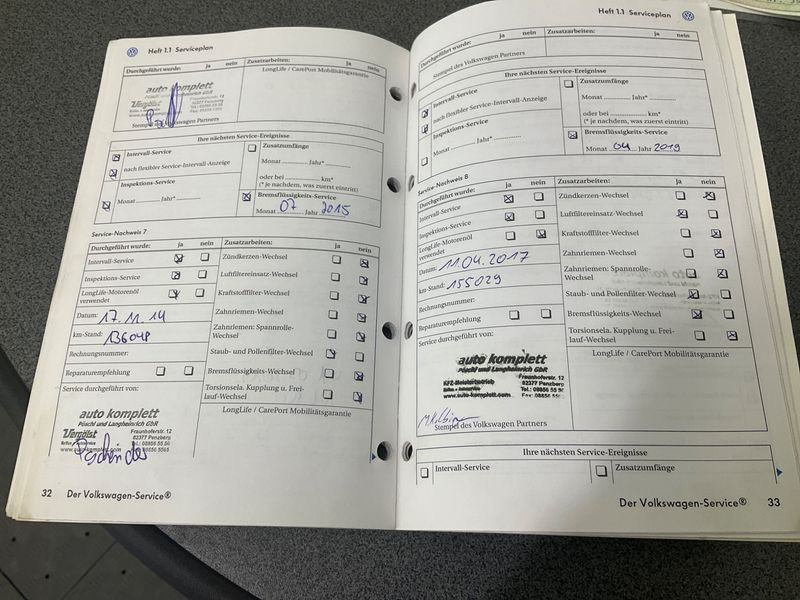 Heft 1.1 Serviceplan
Durchgeführt wurde: ja nein
Zusatzarbeiten:
LongLife / CarePort Mobilitätsgarantie
auto komplett
Pöschl und Langheinrich GbR
Vergölst
Fraunhoferstr. 12
82377 Penzberg
Stempel des Volkswagen Partners
Ihre nächsten Service-Ereignisse
Intervall-Service
nach flexibler Service-Intervall-Anzeige
Inspektions-Service
Monat Jahr*
Zusatzumfänge
Monat Jahr*
oder bei km*
(* je nachdem, was zuerst eintritt)
Bremsflüssigkeits-Service
Monat 07 Jahr 2015
Service-Nachweis 7
Durchgeführt wurde: ja nein
Intervall-Service
Inspektions-Service
LongLife-Motorenöl
verwendet
Datum: 17.11.14
km-Stand: 136048
Rechnungsnummer:
Reparaturempfehlung
Service durchgeführt von:
auto komplett
Pöschl und Langheinrich GbR
Vergölst
Reifen + Autoservice
Fraunhoferstr. 12
82377 Penzberg
www.auto-komplett.com
Zusatzarbeiten: ja nein
Zündkerzen-Wechsel
Luftfiltereinsatz-Wechsel
Kraftstofffilter-Wechsel
Zahnriemen-Wechsel
Zahnriemen: Spannrolle-
Wechsel
Staub- und Pollenfilter-Wechsel
Bremsflüssigkeits-Wechsel
Torsionsela. Kupplung u. Frei-
lauf-Wechsel
LongLife / CarPort Mobilitätsgarantie
32 Der Volkswagen-Service®
Heft 1.1 Serviceplan
Durchgeführt wurde: ja nein
Zusatzarbeiten: ja nein
Stempel des Volkswagen Partners
Ihre nächsten Service-Ereignisse
Intervall-Service
nach flexibler Service-Intervall-Anzeige
Inspektions-Service
Monat Jahr*
Zusatzumfänge
Monat Jahr*
oder bei km*
(* je nachdem, was zuerst eintritt)
Bremsflüssigkeits-Service
Monat 04 Jahr 2019
Service-Nachweis 8
Durchgeführt wurde: ja nein
Intervall-Service
Inspektions-Service
LongLife-Motorenöl
verwendet
Datum: 11.04.2017
km-Stand: 155029
Rechnungsnummer:
Reparaturempfehlung
Service durchgeführt von:
auto komplett
Pöschl und Langheinrich GbR
KFZ-Meisterbetrieb
Reifen + Autoservice
Fraunhoferstr. 12
82377 Penzberg
Stempel des Volkswagen Partners
Zusatzarbeiten: ja nein
Zündkerzen-Wechsel
Luftfiltereinsatz-Wechsel
Kraftstofffilter-Wechsel
Zahnriemen-Wechsel
Zahnriemen: Spannrolle-
Wechsel
Staub- und Pollenfilter-Wechsel
Bremsflüssigkeits-Wechsel
Torsionsela. Kupplung u. Frei-
lauf-Wechsel
LongLife / CarePort Mobilitätsgarantie
Ihre nächsten Service-Ereignisse
Intervall-Service
Zusatzumfänge
Der Volkswagen-Service® 33